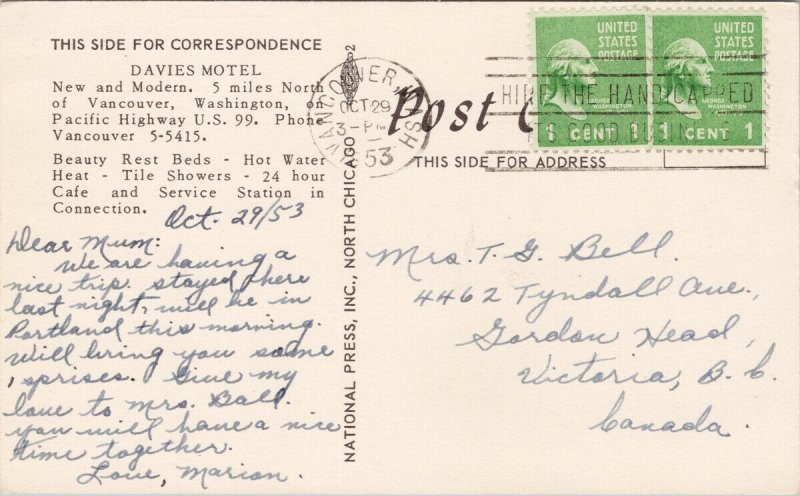 THIS SIDE FOR CORRESPONDENCE
DAVIES MOTEL
New and Modern. 5 miles North
of Vancouver, Washington, on
Pacific Highway U.S. 99. Phone
Vancouver 5-5415.
Beauty Rest Beds - Hot Water
Heat - Tile Showers - 24 hour
Cafe and Service Station in
Connection.
Oct. 29/53
Dear Mum:
We are having a
nice trip. stayed here
last night, will be in
Portland this morning.
Will bring you some
sprises. Give my
love to Mrs. Ball.
you will have a nice
time together.
Love, Marion.
NATIONAL PRESS, INC., NORTH CHICAGO
2
VANCOUVER, WASH
OCT 29
3-PM
53
Post
HIRE THE HANDICAPPED
UNITED
STATES
POSTAGE
GEORGE
WASHINGTON
1 CENT 1
UNITED
STATES
POSTAGE
GEORGE
WASHINGTON
1 CENT 1
THIS SIDE FOR ADDRESS
Mrs. T. G. Bell.
4462 Tyndall Ave.,
Gordon Head,
Victoria, B.C.
Canada.